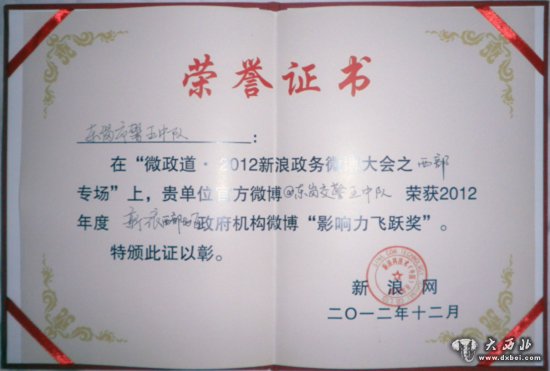 荣誉证书
东岗交警五中队:
在“微政道·2012新浪政务微博大会之西部
专场”上，贵单位官方微博@东岗交警五中队 荣获2012
年度新浪西部政府机构微博“影响力飞跃奖”。
特颁此证以彰。
新浪网
二〇一二年十二月
大西北
www.dxbei.com